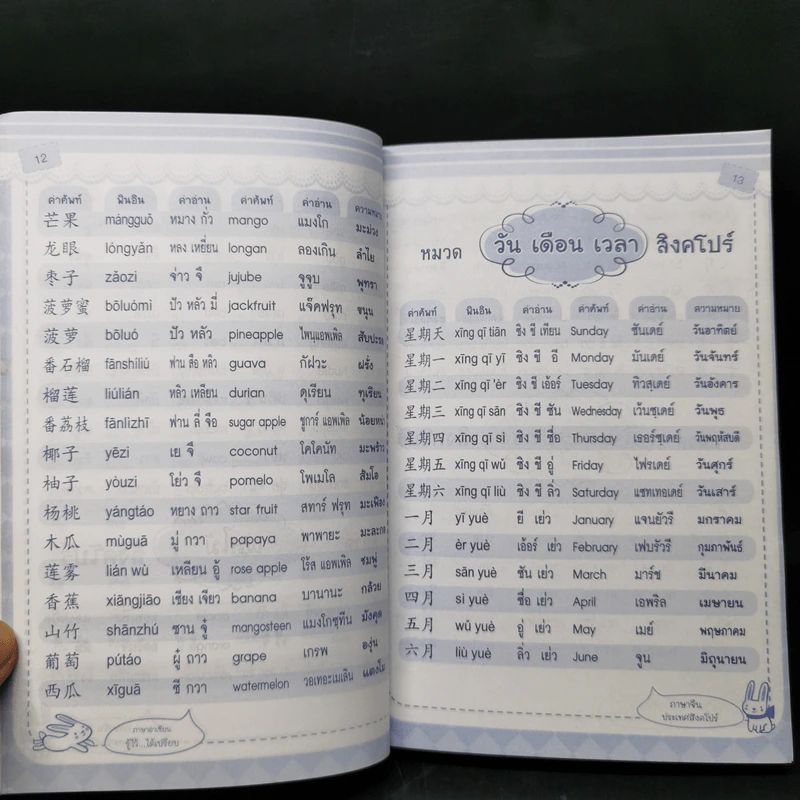 12
คำศัพท์ พินอิน คำอ่าน คำศัพท์ คำอ่าน ความหมาย
芒果 mángguǒ หมาง กั่ว mango แมงโก มะม่วง
龙眼 lóngyǎn หลง เหยี่ยน longan ลองเกิน ลำไย
枣子 zǎozi จ่าว จึ jujube จูจูบ พุทรา
菠萝蜜 bōluómì ปัว หลัว มี่ jackfruit แจ็คฟรุท ขนุน
菠萝 bōluó ปัว หลัว pineapple ไพนฺแอพเพิล สับปะรด
番石榴 fānshíliú ฟาน สือ หลิว guava กัฝวะ ฝรั่ง
榴莲 liúlián หลิว เหลียน durian ดุเรียน ทุเรียน
番荔枝 fānlìzhī ฟาน ลี่ จือ sugar apple ชูการ์ แอพเพิล น้อยหน่า
椰子 yēzi เย จึ coconut โคโคนัท มะพร้าว
柚子 yòuzi โย่ว จึ pomelo โพเมโล ส้มโอ
杨桃 yángtáo หยาง ถาว star fruit สทาร์ ฟรุท มะเฟือง
木瓜 mùguā มู่ กวา papaya พาพายะ มะละกอ
莲雾 lián wù เหลียน อู้ rose apple โร้ส แอพเพิล ชมพู่
香蕉 xiāngjiāo เซียง เจียว banana บานานะ กล้วย
山竹 shānzhú ซาน จู๋ mangosteen แมงโกซุทีน มังคุด
葡萄 pútáo ผู๋ ถาว grape เกรพ องุ่น
西瓜 xīguā ซี กวา watermelon วอเทอะเมเลิน แตงโม
ภาษาอาเซียน
รู้ไว้...ได้เปรียบ
13
หมวด วัน เดือน เวลา สิงคโปร์
คำศัพท์ พินอิน คำอ่าน คำศัพท์ คำอ่าน ความหมาย
星期天 xīng qī tiān ซิง ชี เทียน Sunday ซันเดย์ วันอาทิตย์
星期一 xīng qī yī ซิง ชี อี Monday มันเดย์ วันจันทร์
星期二 xīng qī 'èr ซิง ชี เอ้อร์ Tuesday ทิวสฺเดย์ วันอังคาร
星期三 xīng qī sān ซิง ชี ซัน Wednesday เว้นซฺเดย์ วันพุธ
星期四 xīng qī sì ซิง ชี ซื่อ Thursday เธอร์ซฺเดย์ วันพฤหัสบดี
星期五 xīng qī wǔ ซิง ชี อู่ Friday ไฟรเดย์ วันศุกร์
星期六 xīng qī liù ซิง ชี ลิ่ว Saturday แซทเทอเดย์ วันเสาร์
一月 yī yuè ยี เย่ว January แจนยัวรี มกราคม
二月 èr yuè เอ้อร์ เย่ว February เฟบรัวรี กุมภาพันธ์
三月 sān yuè ซัน เย่ว March มาร์ช มีนาคม
四月 sì yuè ซื่อ เย่ว April เอพริล เมษายน
五月 wǔ yuè อู่ เย่ว May เมย์ พฤษภาคม
六月 liù yuè ลิ่ว เย่ว June จูน มิถุนายน
ภาษาจีน
ประเทศสิงคโปร์